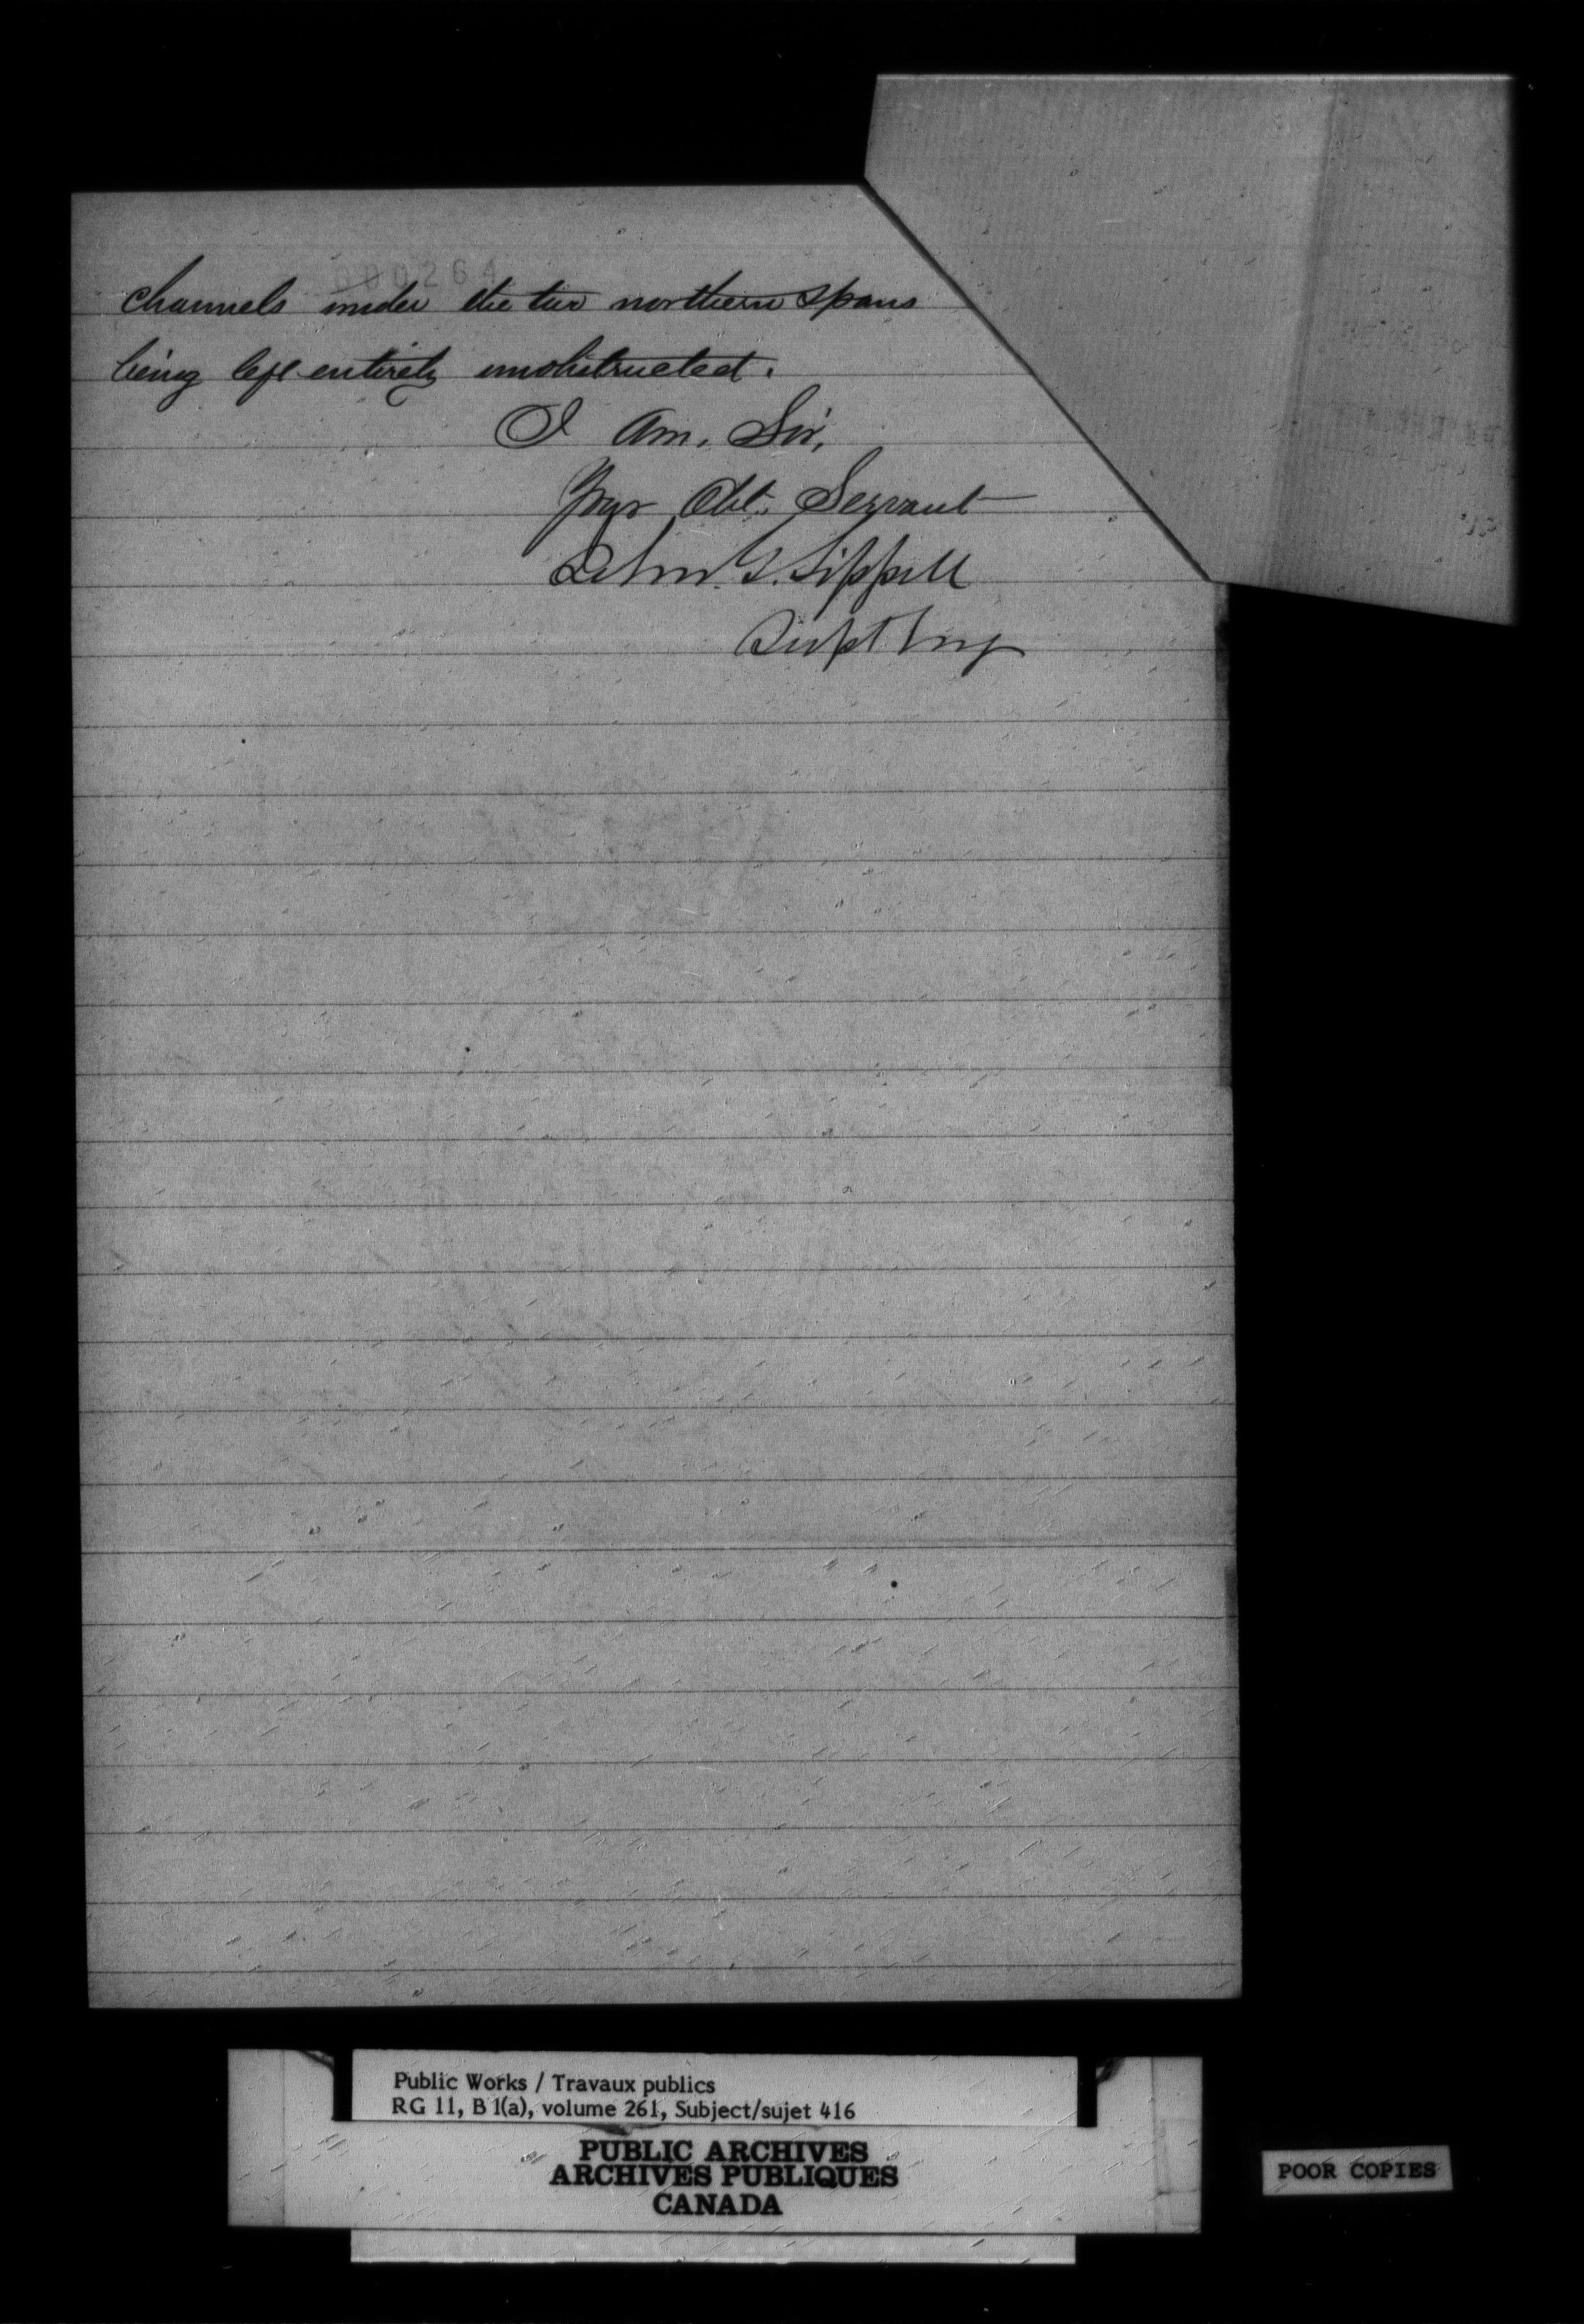 000264
channels under the two northern spans
being left entirely unobstructed.
I am, Sir,
Your Obt. Servant
John G. Sippell
Supt Eng
Public Works / Travaux publics
RG 11, B 1(a), volume 261, Subject/sujet 416
PUBLIC ARCHIVES
ARCHIVES PUBLIQUES
CANADA
POOR COPIES